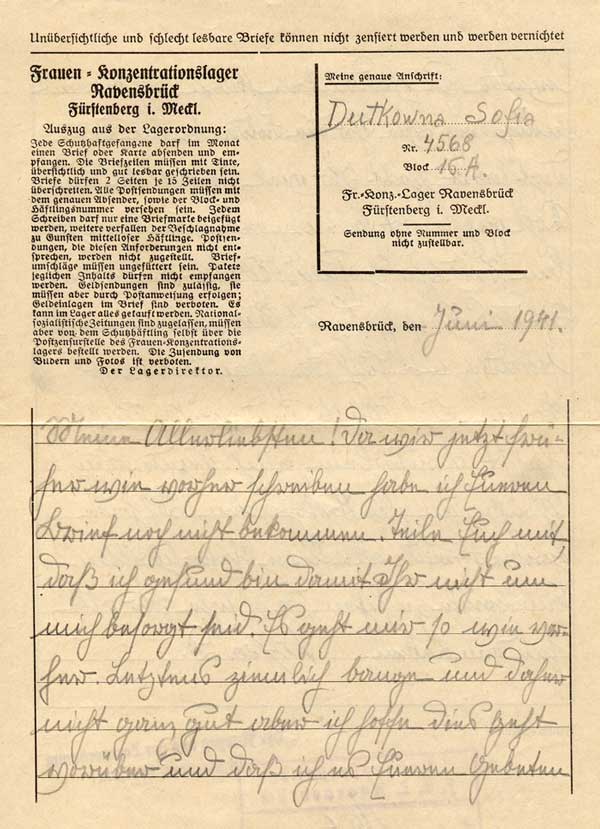 Unübersichtliche und schlecht lesbare Briefe können nicht zensiert werden und werden vernichtet
Frauen-Konzentrationslager
Ravensbrück
Fürstenberg i. Meckl.
Auszug aus der Lagerordnung:
Jede Schutzhaftgefangene darf im Monat
einen Brief oder Karte absenden und em-
pfangen. Die Briefzeilen müssen mit Tinte,
übersichtlich und gut lesbar geschrieben sein.
Briefe dürfen 2 Seiten je 15 Zeilen nicht
überschreiten. Alle Postsendungen müssen mit
dem genauen Absender, sowie der Block- und
Häftlingsnummer versehen sein. Jedem
Schreiben darf nur eine Briefmarke beigefügt
werden, weitere verfallen der Beschlagnahme
zu Gunsten mittelloser Häftlinge. Postsen-
dungen, die diesen Anforderungen nicht ent-
sprechen, werden nicht zugestellt. Brief-
umschläge müssen ungefüttert sein. Pakete
jeglichen Inhalts dürfen nicht empfangen
werden. Geldsendungen sind zulässig, sie
müssen aber durch Postanweisung erfolgen;
Geldeinlagen im Brief sind verboten. Es
kann im Lager alles gekauft werden. National-
sozialistische Zeitungen sind zugelassen, müssen
aber von dem Schutzhäftling selbst über die
Postzensurstelle des Frauen-Konzentrations-
lagers bestellt werden. Die Zusendung von
Bildern und Fotos ist verboten.
Der Lagerdirektor.
Meine genaue Anschrift:
Dutkowna Sofia
Nr. 4568
Block 15 A.
Fr.-Konz.-Lager Ravensbrück
Fürstenberg i. Meckl.
Sendung ohne Nummer und Block
nicht zustellbar.
Ravensbrück, den Juni 1941.
Meine Allerliebsten! Da wir jetzt frü-
her wie vorher schreiben habe ich Eueren
Brief noch nicht bekommen. Teile Euch mit,
daß ich gesund bin damit Ihr nicht um
mich besorgt seid. Es geht mir so wie vor-
her. Letztens ziemlich bange und daher
nicht ganz gut aber ich hoffe dies geht
vorüber und daß ich es Eueren Gebeten